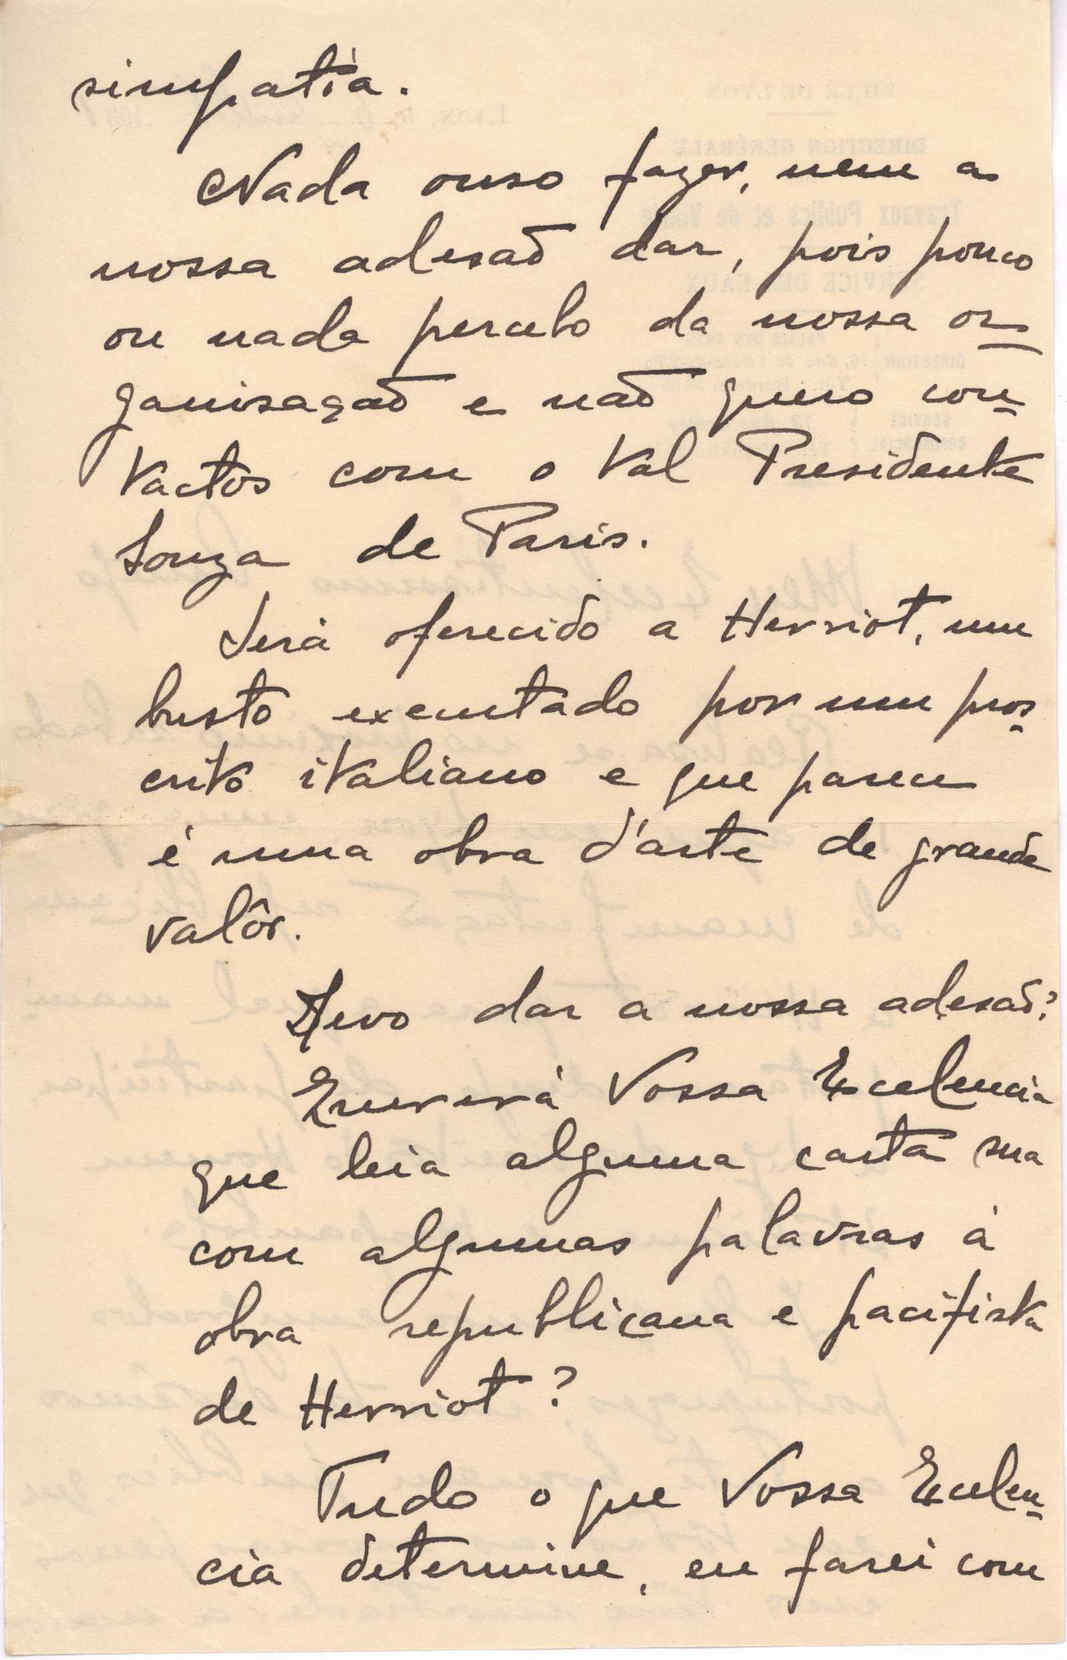 simpatia.
Nada ouso fazer, nem a
nossa adesaõ dar, pois pouco
ou nada percebo da nossa or-
ganisaçaõ e naõ quero con-
tactos com o tal Presidente
Souza de Paris.
Será oferecido a Herriot, um
busto executado por um pros-
crito italiano e que parece
é uma obra d'arte de grande
valôr.
Devo dar a nossa adesaõ?
Quererá Vossa Excelencia
que leia alguma carta sua
com algumas palavras á
obra republicana e pacifista
de Herriot?
Tudo o que Vossa Excelen-
cia determine, eu farei com